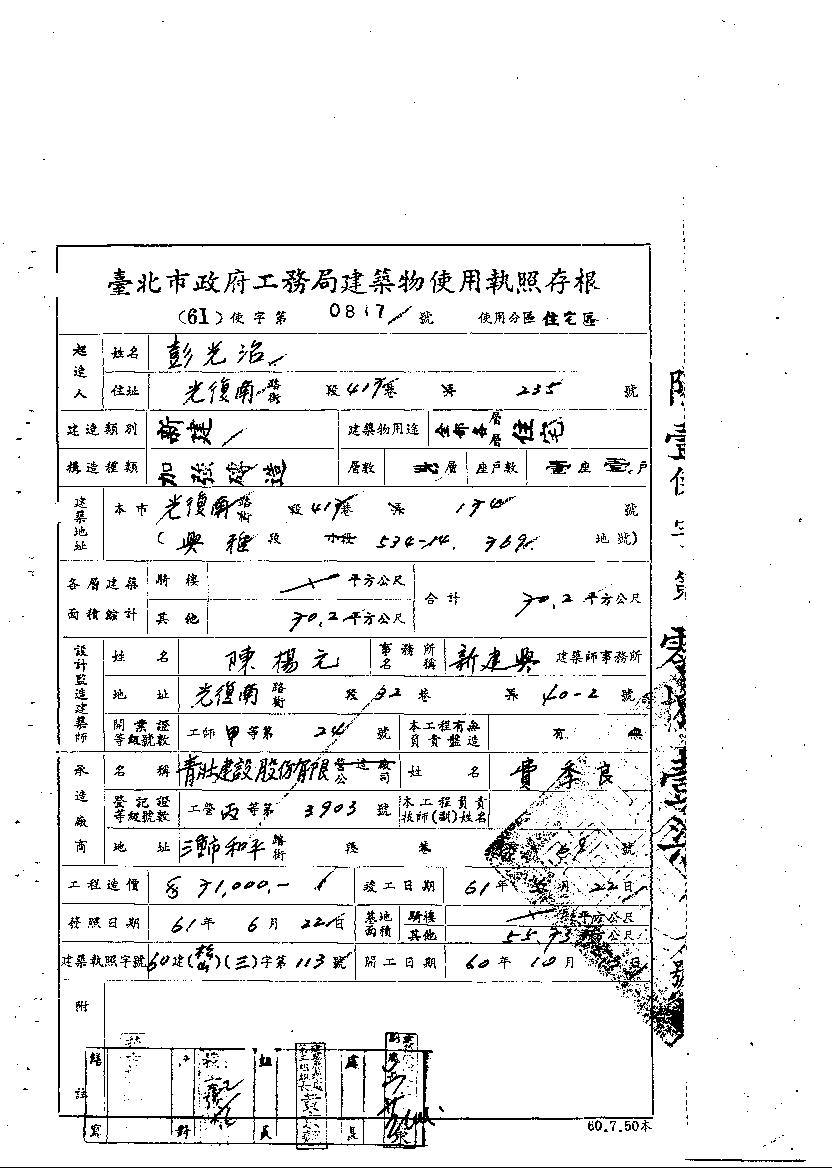 臺北市政府工務局建築物使用執照存根
(61)使字第 0817 號 使用分區 住宅區
起造人 姓名 彭光治
住址 光復南 路街 段 417巷 弄 235 號
建造類別 新建 建築物用途 全部各層層 住宅
構造種類 加強磚造 層數 層 座戶數 壹座 壹戶
建築地址 本市 光復南 路街 段 417巷 弄 號
(興雅段 小段 534-14, 369 地號)
各層建築面積總計 騎樓 平方公尺 合計 70.2 平方公尺
其他 70.2 平方公尺
設計監造建築師 姓名 陳楊元 事務所名稱 新建興 建築師事務所
地址 光復南 路街 段 32 巷 弄 40-2 號
開業證等級號數 工師 甲 等第 24 號 本工程有無負責監造 有 無
承造廠商 名稱 青壯建設股份有限 營造廠公司 姓名 費季良
登記證等級號數 工營 丙 等第 3903 號 本工程負責技師(副)姓名
地址 三重市和平 路街 段 巷 59 號
工程造價 71,000.- 竣工日期 61年 月 22日
發照日期 61年 6月 22日 基地面積 騎樓 平方公尺
其他 55.93 平方公尺
建築執照字號 60建(松山)(三)字第 113 號 開工日期 60年 10月 日
附註
繕寫 校對 組員 處長
60.7.50本